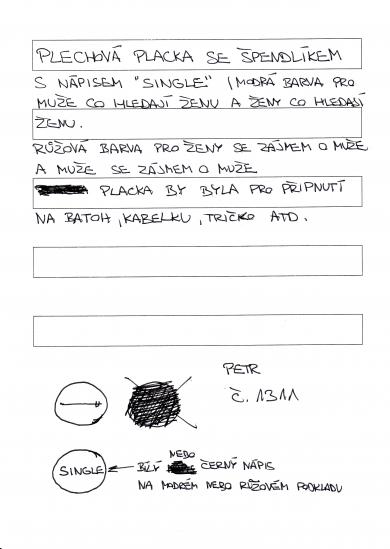 PLECHOVÁ PLACKA SE ŠPENDLÍKEM
S NÁPISEM "SINGLE" (MODRÁ BARVA PRO
MUŽE CO HLEDAJÍ ŽENU A ŽENY CO HLEDAJÍ
ŽENU.
RŮŽOVÁ BARVA PRO ŽENY SE ZÁJMEM O MUŽE
A MUŽE SE ZÁJMEM O MUŽE
PLACKA BY BYLA PRO PŘIPNUTÍ
NA BATOH, KABELKU, TRIČKO ATD.
PETR
Č. 1311
NEBO
SINGLE BÍLÝ ČERNÝ NÁPIS
NA MODRÉM NEBO RŮŽOVÉM PODKLADU